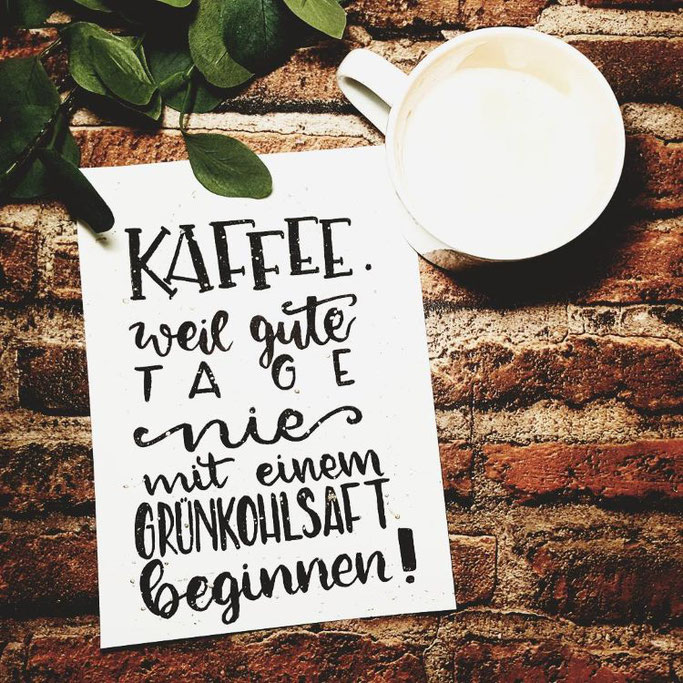 KAFFEE.
weil gute
TAGE
nie
mit einem
GRÜNKOHLSAFT
beginnen!